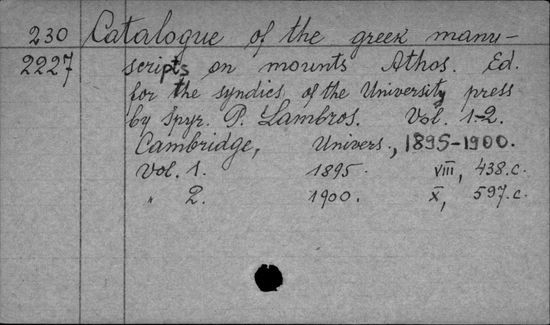 230 Catalogue of the greek manu-
2227 scripts on mounts Athos. Ed.
for the syndics of the University press
by Spyr. P. Lambros. Vol. 1-2.
Cambridge, Univers., 1895-1900.
Vol. 1. 1895. VIII, 438.c.
" 2. 1900. X, 597.c.